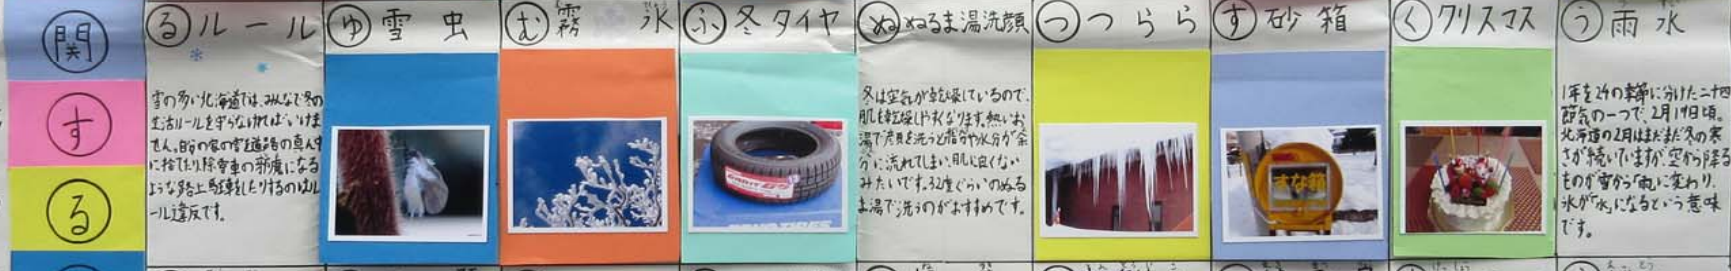 関
す
る
る ルール
雪の多い北海道では、みんなで冬の
生活ルールを守らなければいけま
せん。自分の家の雪を道路の真ん中
に捨てたり除雪車の邪魔になる
ような路上駐車をしたりするのはル
ール違反です。
ゆ 雪虫
む 霧氷
ふ 冬タイヤ
ぬ ぬるま湯洗顔
冬は空気が乾燥しているので、
肌も乾燥しやすくなります。熱いお
湯で顔を洗うと脂分や水分が余
分に流れてしまい、肌に良くない
みたいです。32度ぐらいのぬる
ま湯で洗うのがおすすめです。
つ つらら
す 砂箱
すな箱
く クリスマス
う 雨水
1年を24の季節に分けた二十四
節気の一つで、2月19日頃。
北海道の2月はまだまだ冬の寒
さが続いていますが、空から降る
ものが雪から「雨」に変わり、
氷が「水」になるという意味
です。